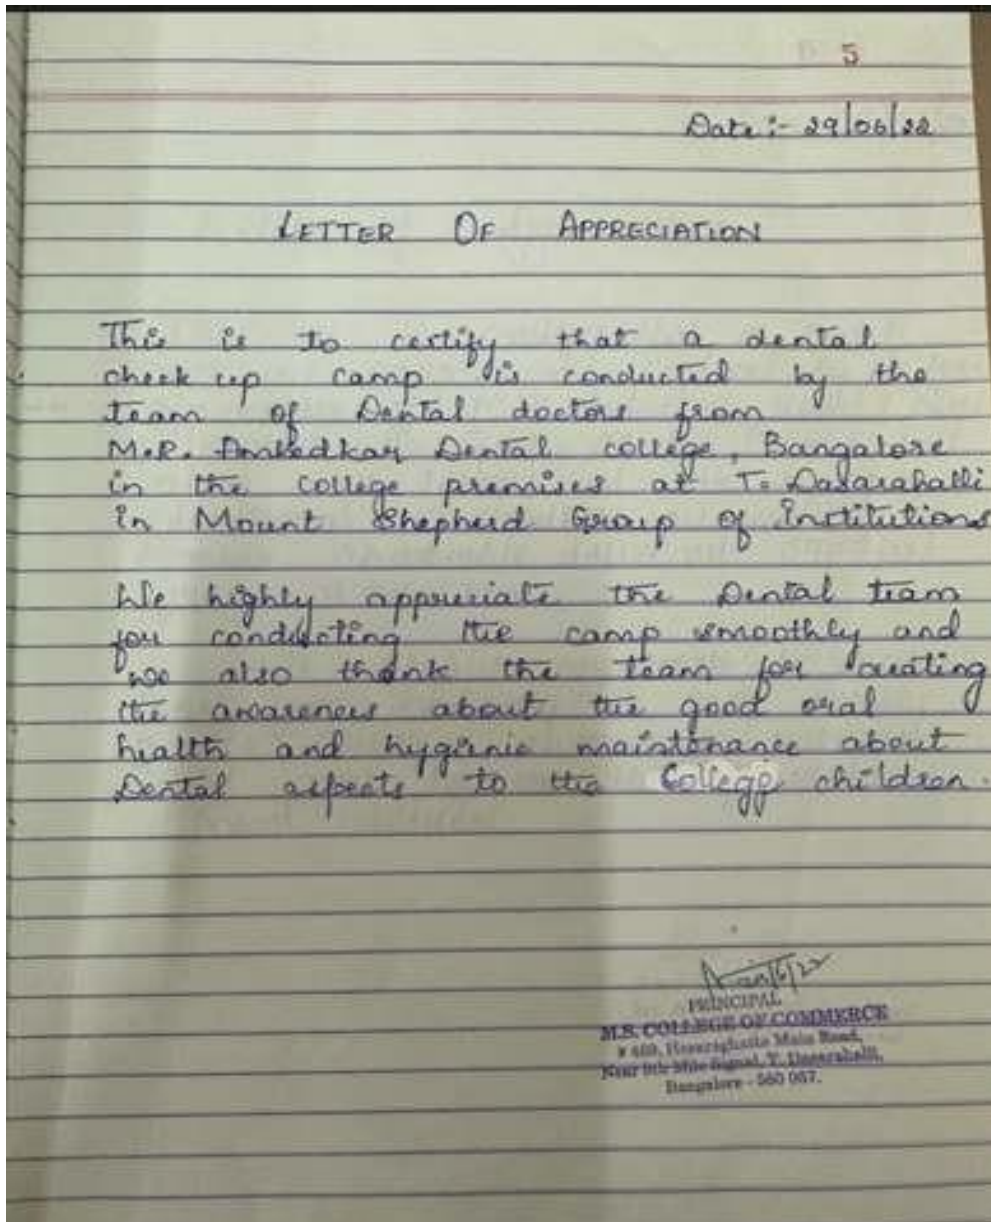 5
Date :- 29/06/22
LETTER OF APPRECIATION
This is to certify that a dental
check up camp is conducted by the
team of Dental doctors from
M.R. Ambedkar Dental college, Bangalore
in the college premises at T. Dasarahalli
in Mount Shepherd Group of Institutions
We highly appreciate the Dental team
for conducting the camp smoothly and
we also thank the team for creating
the awareness about the good oral
health and hygienic maintenance about
Dental aspects to the College children.
PRINCIPAL
M.S. COLLEGE OF COMMERCE
# 469, Hesaraghatta Main Road,
Near 8th Mile Signal, T. Dasarahalli,
Bangalore - 560 057.